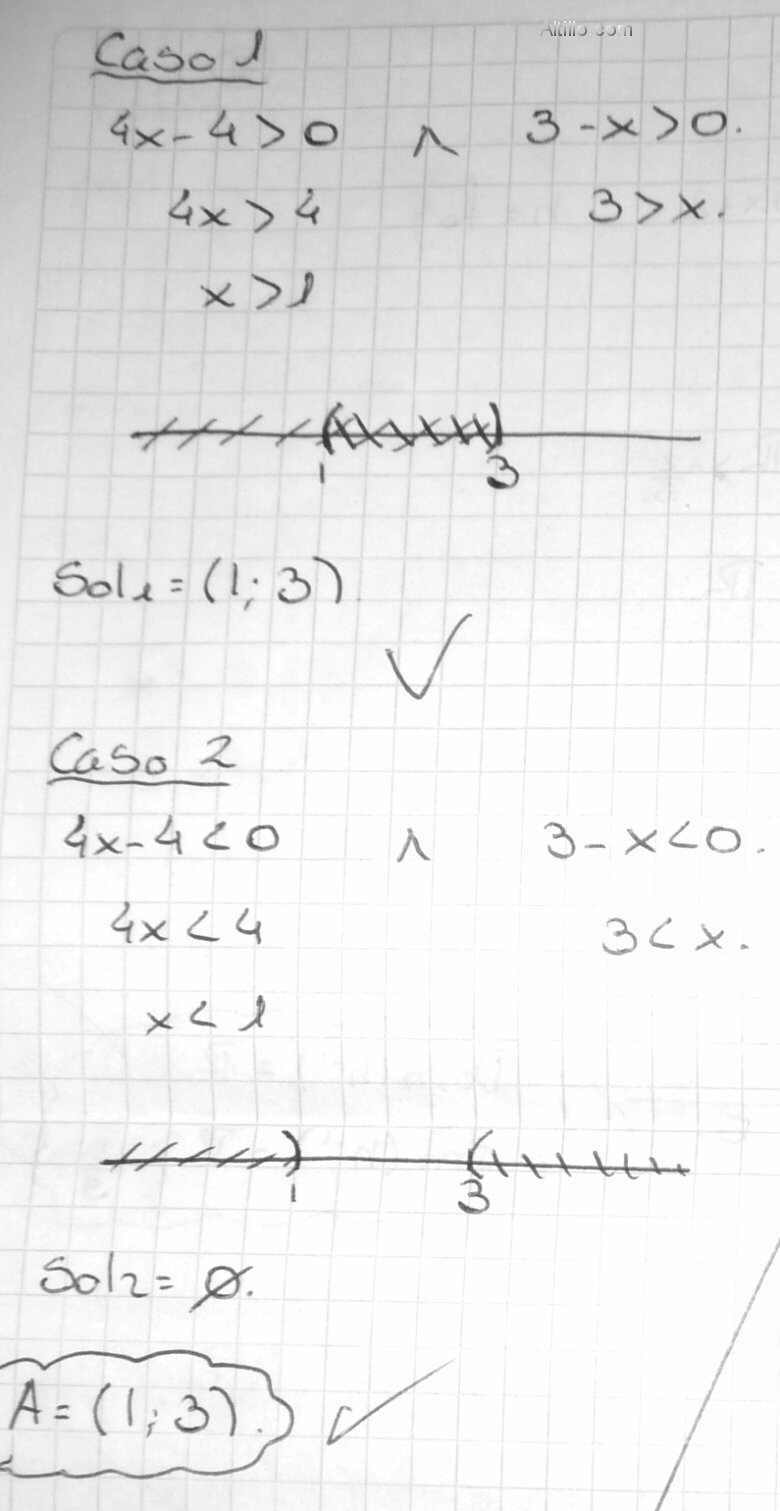 Altillo.com
Caso 1
4x-4>0 ∧ 3-x>0.
4x>4 3>x.
x>1
1 3
Sol1=(1;3)
Caso 2
4x-4<0 ∧ 3-x<0.
4x<4 3<x.
x<1
1 3
Sol2=∅.
A=(1;3).